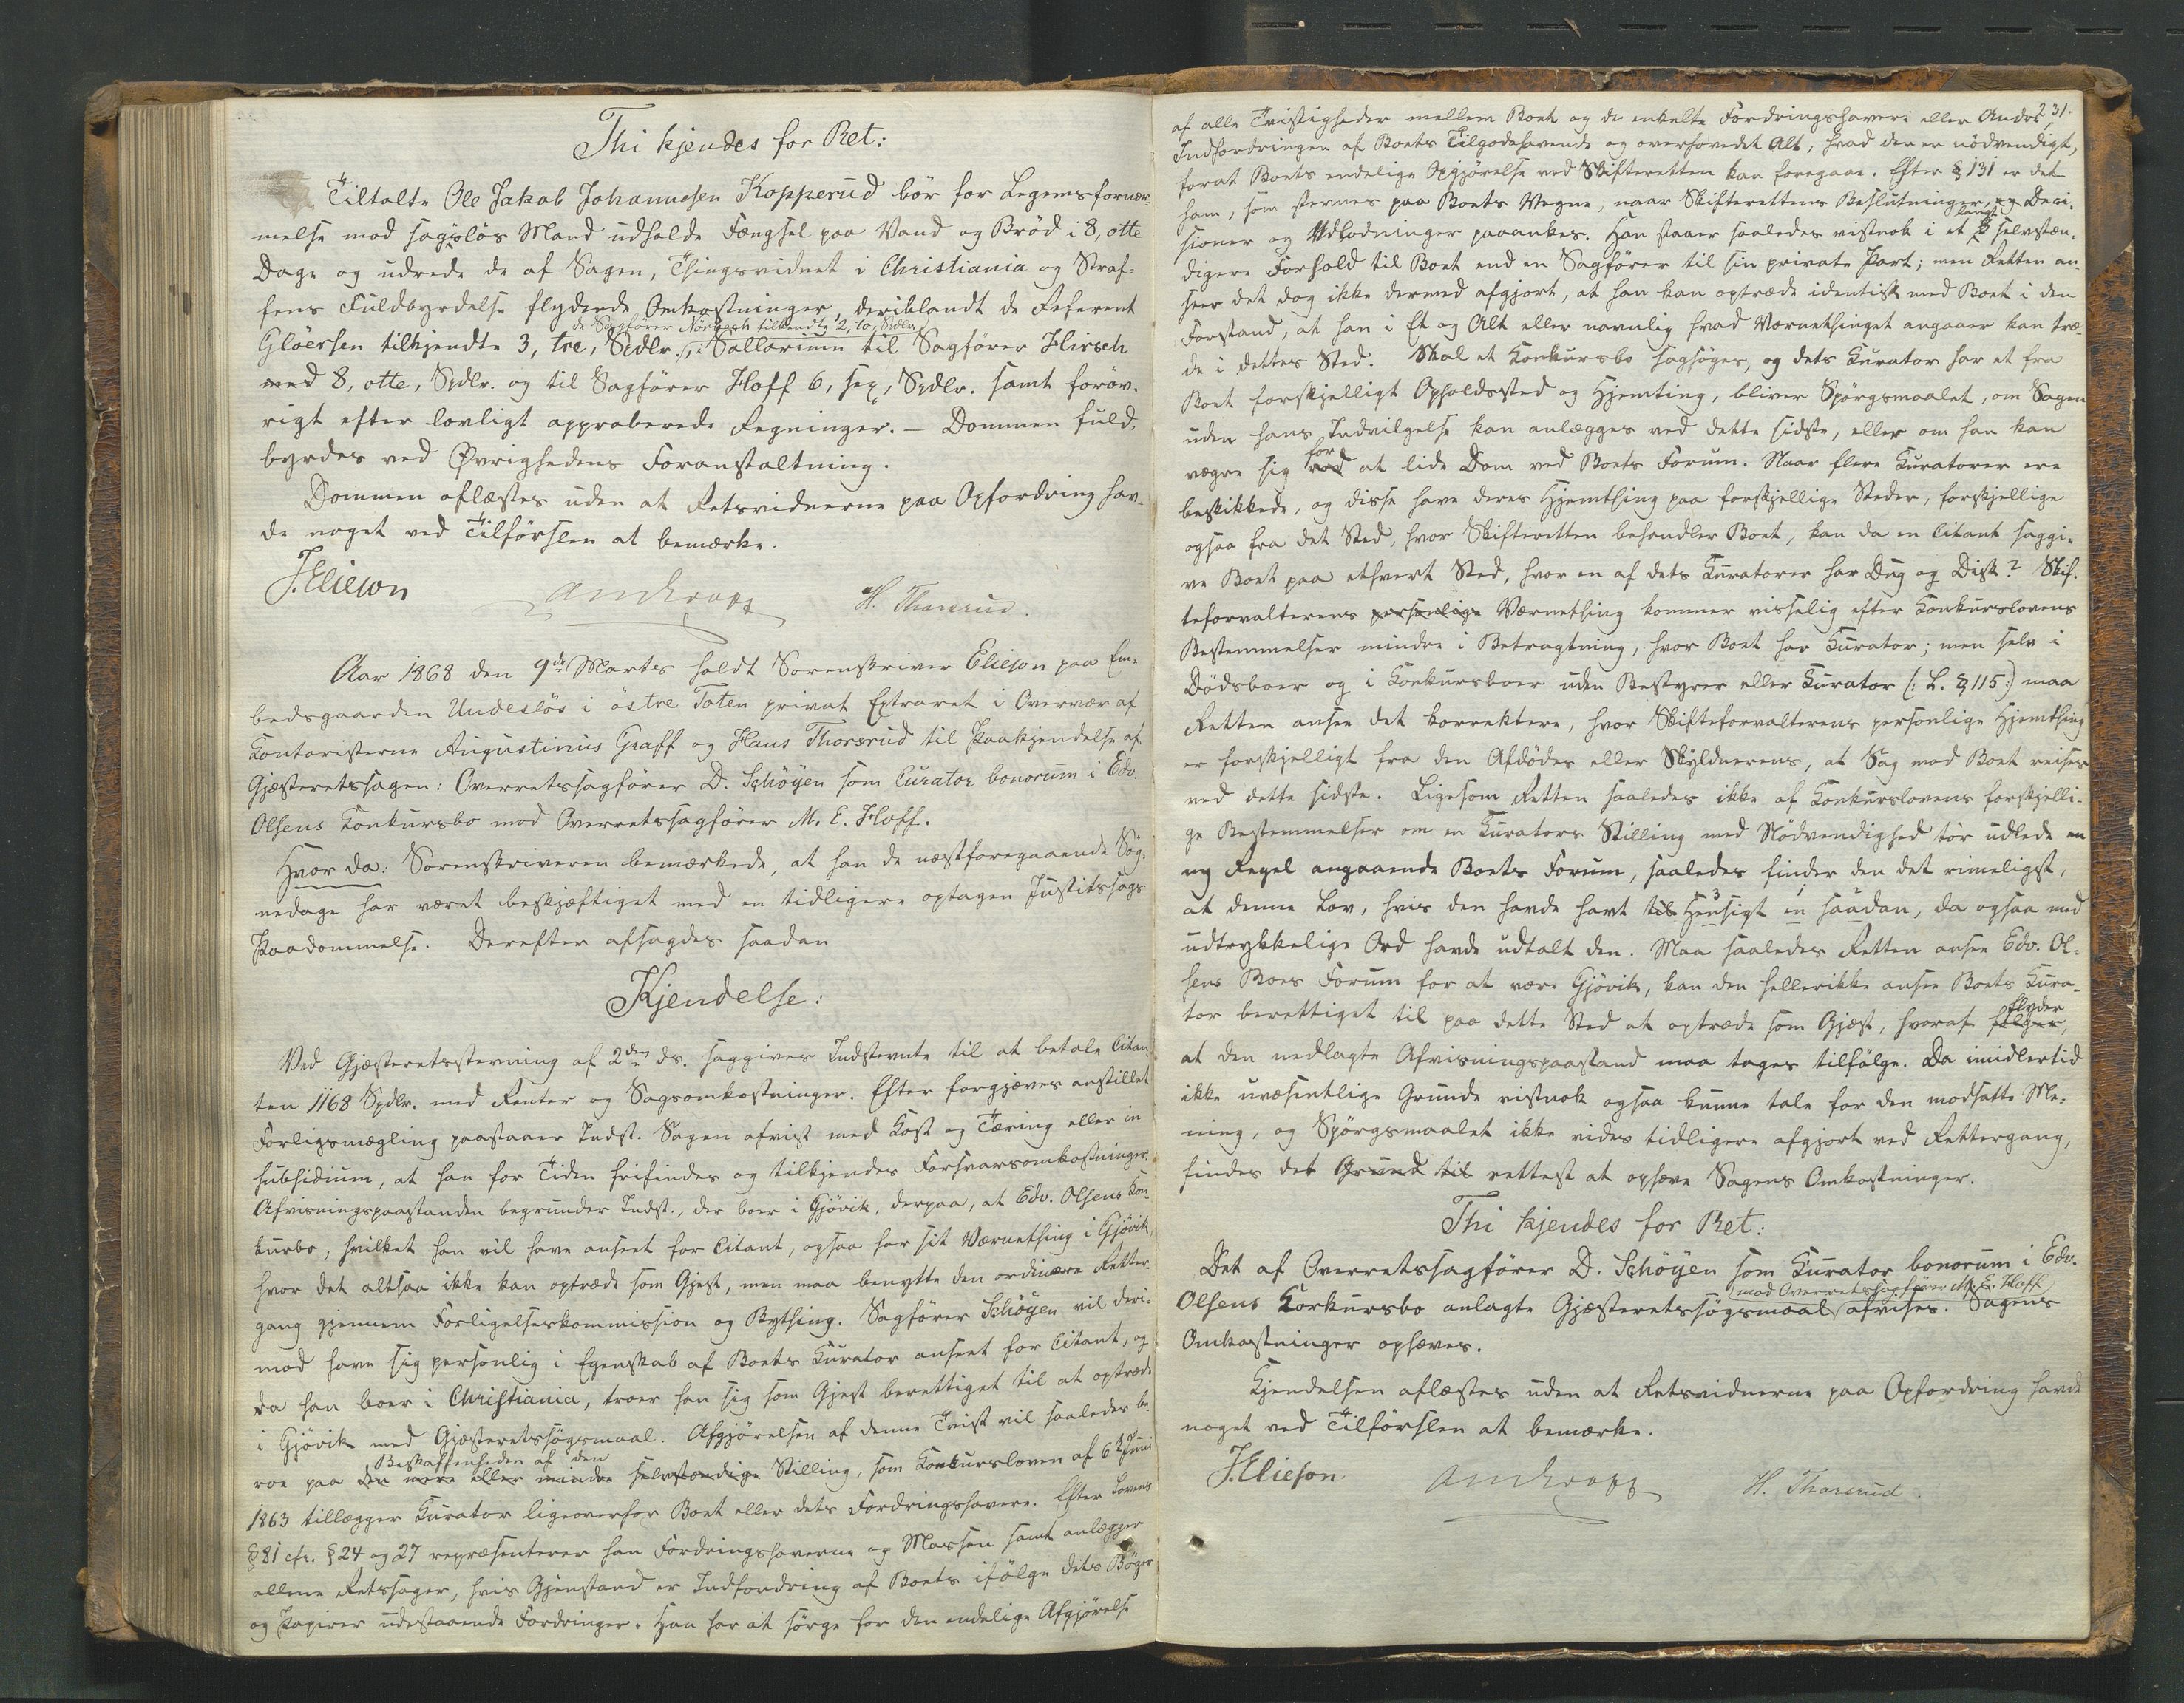 Thi kjendes for Ret:
Tiltalte Ole Jakob Johannesen Kopperud bör for Legemsfornær-
melse mod sagislös Mand udholde Fængsel paa Vand og Bröd i 8, otte
Dage og udrede de af Sagen, Thingsvidnet i Christiania og Straf-
fens Fuldbyrdelse flydende Omkostninger, deriblandt de Referent
de Sagförer Nörbech tilkendte 2, to, Spdlr.
Gløersen tilkjendte 3, tre, Spdlr., i Sallarium til Sagförer Hirsch
med 8, otte, Spdlr. og til Sagförer Hoff 6, sex, Spdlr. samt foröv-
rigt efter lovligt approberede Regninger. – Dommen fuld-
byrdes ved Øvrighedens Foranstaltning.
Dommen oplæstes uden at Retsvidnerne paa Opfordring hav-
de noget ved Tilförslen at bemærke.
J. Elieson
H. Thorsrud.
Aar 1868 den 9de Marts holdt Sorenskriver Elieson paa Em-
bedsgaarden Undeslös i östre Toten privat Extraret i Overvær af
Kontoristerne Augustinus Graff og Hans Thorsrud til Paakjendelse af
Gjæsteretssagen: Overretssagförer D. Schöyen som Curator bonorum i Edv.
Olsens Konkursbo mod Overretssagförer M. E. Hoff.
Hvor da: Sorenskriveren bemærkede, at han de næstforegaaende Søg-
nedage har været beskjæftiget med en tidligere optagen Justitssags
Paadømmelse. Derefter afsagdes saadan
Kjendelse:
Ved Gjæsteretsstevning af 2den ds. saggives Indstevnte til at betale Citan-
ten 1168 Spdlr. med Renter og Sagsomkostninger. Efter forgjæves anstillet
Forligsmægling paastaaer Indst. Sagen afvist med Kost og Tæring eller in
subsidium, at han for Tiden frifindes og tilkjendes Forsvarsomkostninger.
Afvisningspaastanden begrunder Indst., der boer i Gjövik, derpaa, at Edv. Olsens Kon-
kursbo, hvilket han vil have anseet for Citant, ogsaa har sit Værnething i Gjövik,
hvor det altsaa ikke kan optræde som Gjest, men maa benytte den ordinære Retter-
gang gjennem Forligelseskommission og Bything. Sagförer Schöyen vil deri-
mod have sig personlig i Egenskab af Boets Kurator anseet for Citant, og
da han boer i Christiania, troer han sig som Gjest berettiget til at optræde
i Gjövik med Gjæsteretssögsmaal. Afgjörelsen af denne Tvist vil saaledes be-
Beskaffenheden af den
roe paa den mere eller mindre selvstændige Stilling, som Konkursloven af 6te Juni
1863 tillægger Kurator ligeoverfor Boet eller dets Fordringshavere. Efter Lovens
§ 81 cfr. § 24 og 27 repræsenterer han Fordringshaverne og Massen samt anlægger
allene Retssager, hvis Gjenstand er Indfordring af Boets ifölge dets Böger
og Papirer udestaaende Fordringer. Han har at sörge for den endelige Afgjörelse
231.
af alle Tvistigheder mellem Boet og de enkelte Fordringshavere eller Andre,
Indfordringen af Boets Tilgodehavende og overhovedet Alt, hvad der er nödvendigt,
forat Boets endelige Opgjörelse ved Skifteretten kan foregaae. Efter § 131 er det
ham, som stevnes paa Boets Vegne, naar Skifterettens Beslutninger, og Deci-
langt
sioner og Udlodninger paaankes. Han staaer saaledes vistnok i et selvstæn-
digere Forhold til Boet end en Sagförer til sin private Part; men Retten an-
seer det dog ikke dermed afgjort, at han kan optræde identisk med Boet i den
Forstand, at han i Et og Alt eller navnlig hvad Værnethinget angaaer kan træ-
de i dettes Sted. Skal et Konkursbo sagsöges, og dets Kurator har et fra
Boet forskjelligt Opholdssted og Hjemting, bliver Spörgsmaalet, om Sagen
uden hans Indvilgelse kan anlægges ved dette sidste, eller om han kan
for
vægre sig ved at lide Dom ved Boets Forum. Naar flere Kuratorer ere
beskikkede, og disse have deres Hjemthing paa forskjellige Steder, forskjellige
ogsaa fra det Sted, hvor Skifteretten behandler Boet, kan da en Citant saggi-
ve Boet paa ethvert Sted, hvor en af dets Kuratorer har Dug og Disk? Skif-
teforvalterens personlige Værnething kommer visselig efter Konkurslovens
Bestemmelser mindre i Betragtning, hvor Boet har Kurator; men selv i
Dödsboer og i Konkursboer uden Bestyrer eller Kurator (: L. § 115:) maa
Retten ansee det korrektere, hvor Skifteforvalterens personlige Hjemthing
er forskjelligt fra den Afdödes eller Skyldnerens, at Sag mod Boet reises
ved dette sidste. Ligesom Retten saaledes ikke af Konkurslovens forskjelli-
ge Bestemmelser om en Kurators Stilling med Nödvendighed tör udlede en
ny Regel angaaende Boets Forum, saaledes finder den det rimeligst,
at denne Lov, hvis den havde havt til Hensigt en saadan, da ogsaa med
udtrykkelige Ord havde udtalt den. Maa saaledes Retten ansee Edv. Ol-
sens Boes Forum for at være Gjövik, kan den hellerikke ansee Boets Kura-
flyder
tor berettiget til paa dette Sted at optræde som Gjæst, hvoraf fölger,
at den nedlagte Afvisningspaastand maa tages tilfölge. Da imidlertid
ikke uvæsentlige Grunde vistnok ogsaa kunne tale for den modsatte Me-
ning, og Spörgsmaalet ikke vides tidligere afgjort ved Rettergang,
findes det Grund til rettest at ophæve Sagens Omkostninger.
Thi kjendes for Ret:
Det af Overretssagförer D. Schöyen som Kurator bonorum i Edv.
mod Overretssagförer M. E. Hoff
Olsens Korkursbo anlagte Gjæsteretssögsmaal afvises. Sagens
Omkostninger ophæves.
Kjendelsen oplæstes uden at Retsvidnerne paa Opfordring havde
noget ved Tilförslen at bemærke.
J. Elieson.
H. Thorsrud.